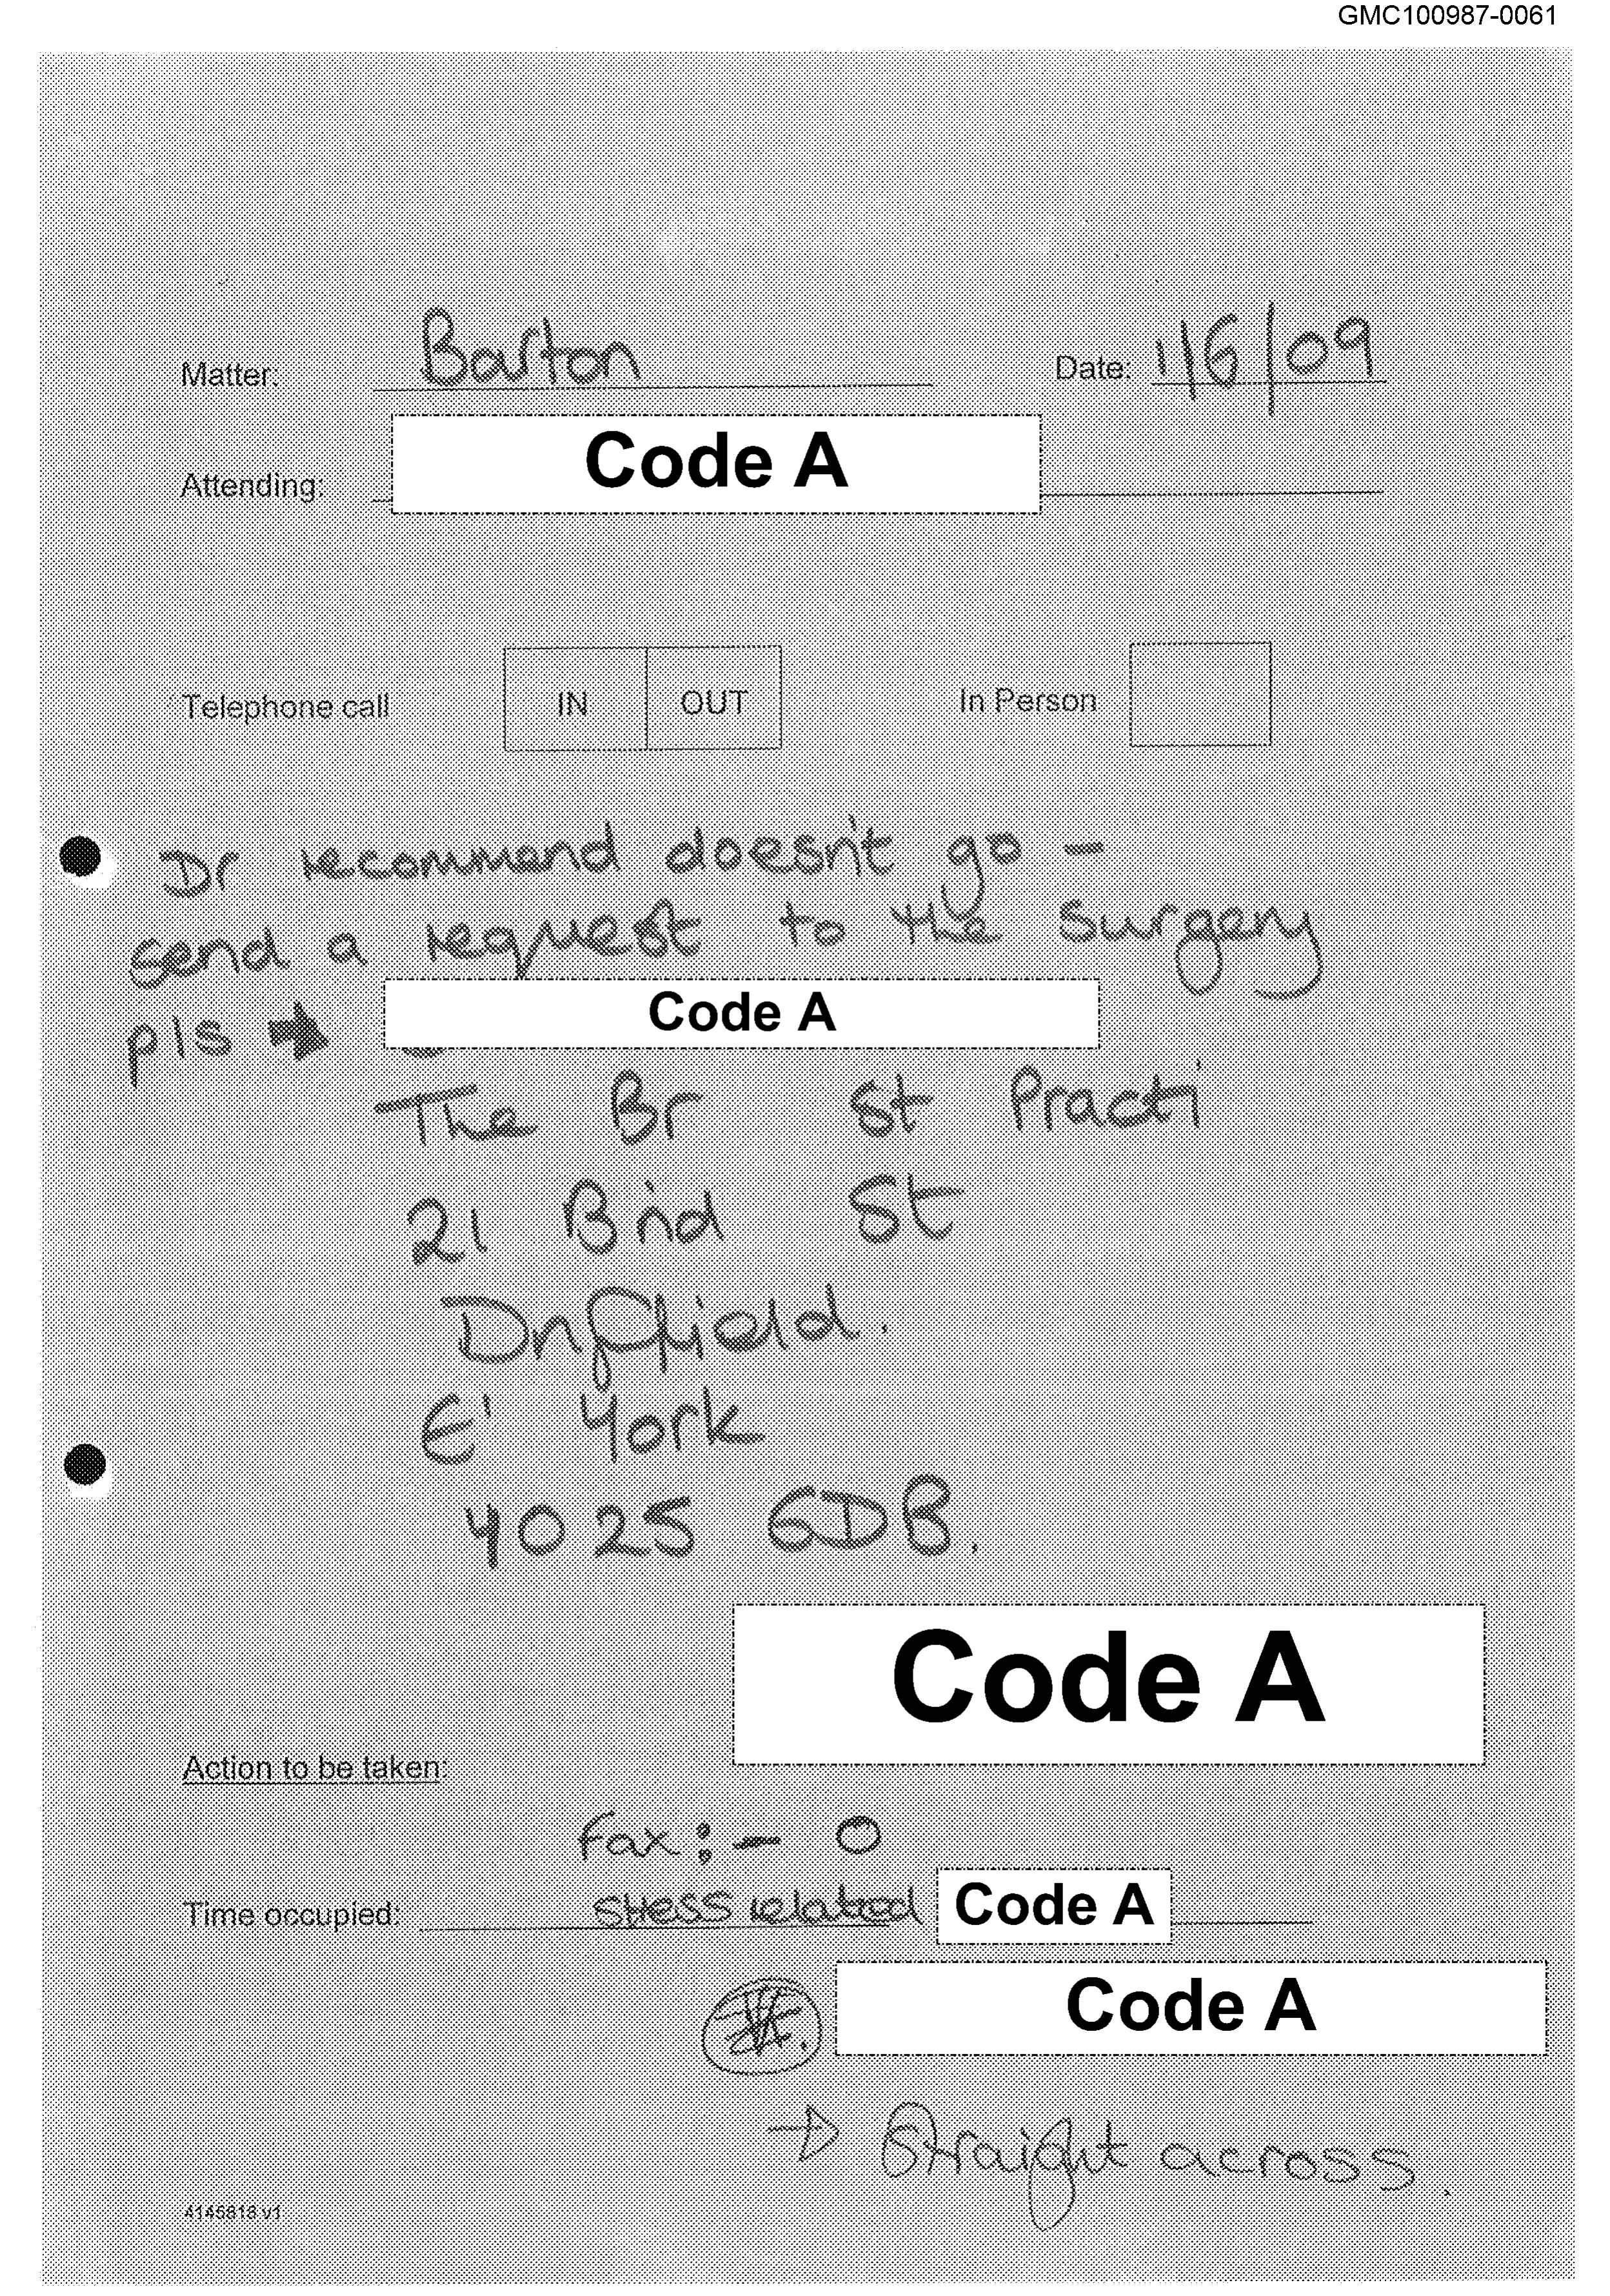 GMC100987-0061
Matter: Barton Date: 1/6/09
Code A
Attending:
Telephone call IN OUT In Person
Dr recommend doesn't go -
send a request to the surgery
Code A
pls →
The Br St Practi
21 Brid St
Driffield.
E' York
YO25 6DB.
Code A
Action to be taken:
Fax :- 0
Time occupied: stress related Code A
Code A
→ Straight across.
4145818 v1